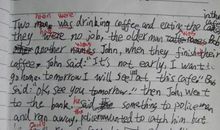 men were
Two man was drinking coffee and eating the cake
they no job, the older man
another John, when they finish their
coffee. John said: "It's not early, I want t
go home, tomorrow I will see at this cafe." Bo
Said: "OK, see you tomorrow." then John went
to the bank, he said the something to policeman
and ran away. Policeman wanted to catch him, but